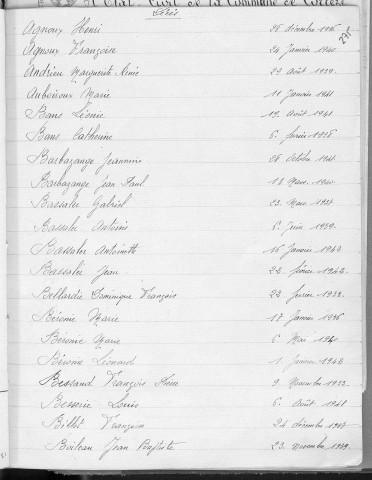 Etat Civil de la Commune de
Décès
Agnoux Henri 28 décembre 1936
Agnoux Françoise 24 Janvier 1940
Andrieu Marguerite Aimée 22 Août 1939
Auboiroux Marie 11 Janvier 1941
Bans Léonie 19 Août 1941
Bans Catherine 6 février 1936
Barbazange Jeannine 26 Octobre 1941
Barbazange Jean Paul 18 Mars 1940
Bassaler Gabriel 23 Mars 1937
Bassaler Antoine 6 Juin 1939
Bassaler Antoinette 16 Janvier 1942
Bassaler Jean 22 février 1942
Bellardie Dominique François 22 février 1939
Béronie Marie 17 Janvier 1936
Béronie Marie 6 Mai 1940
Béronie Léonard 1 Janvier 1942
Bessaud François 9 Novembre 1933
Besserie Louis 6 Août 1941
Billot François 24 décembre 1937
Boileau Jean Baptiste 23 novembre 1939